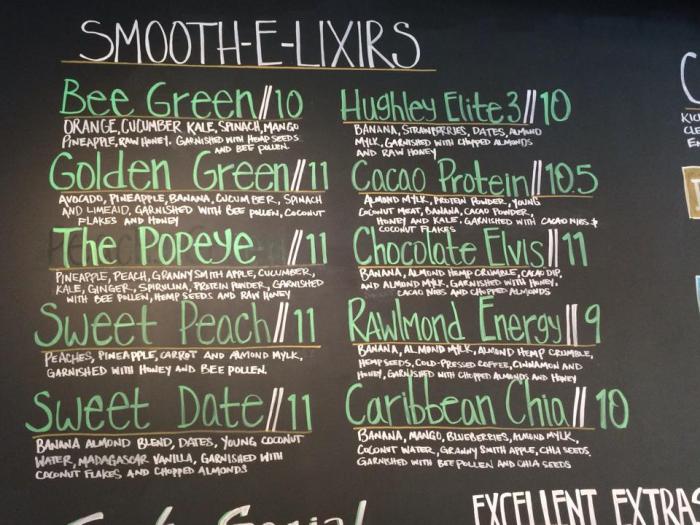 SMOOTH-E-LIXIRS
Bee Green//10
ORANGE, CUCUMBER KALE, SPINACH, MANGO
PINEAPPLE, RAW HONEY. GARNISHED WITH HEMP SEEDS
AND BEE POLLEN.
Golden Green//11
AVOCADO, PINEAPPLE, BANANA, CUCUMBER, SPINACH
AND LIMEAID, GARNISHED WITH BEE POLLEN, COCONUT
FLAKES AND HONEY
The Popeye //11
PINEAPPLE, PEACH, GRANNY SMITH APPLE, CUCUMBER,
KALE, GINGER, SPIRULINA, PROTEIN POWDER, GARNISHED
WITH BEE POLLEN, HEMP SEEDS AND RAW HONEY
Sweet Peach//11
PEACHES, PINEAPPLE, CARROT AND ALMOND MYLK,
GARNISHED WITH HONEY AND BEE POLLEN.
Sweet Date//11
BANANA ALMOND BLEND, DATES, YOUNG COCONUT
WATER, MADAGASCAR VANILLA, GARNISHED WITH
COCONUT FLAKES AND CHOPPED ALMONDS
Hughley Elite 3//10
BANANA, STRAWBERRIES, DATES, ALMOND
MYLK, GARNISHED WITH CHOPPED ALMONDS
AND RAW HONEY
Cacao Protein//10.5
ALMOND MYLK, PROTEIN POWDER, YOUNG
COCONUT MEAT, BANANA, CACAO POWDER,
HONEY AND KALE. GARNISHED WITH CACAO NIBS &
COCONUT FLAKES
Chocolate Elvis//11
BANANA, ALMOND HEMP CRUMBLE, CACAO DIP,
AND ALMOND MYLK, GARNISHED WITH HONEY,
CACAO NIBS AND CHOPPED ALMONDS
RAWlmond Energy//9
BANANA, ALMOND MYLK, ALMOND HEMP CRUMBLE,
HEMP SEEDS, COLD-PRESSED COFFEE, CINNAMON AND
HONEY, GARNISHED WITH CHOPPED ALMONDS AND HONEY
Caribbean Chia//10
BANANA, MANGO, BLUEBERRIES, ALMOND MYLK,
COCONUT WATER, GRANNY SMITH APPLE, CHIA SEEDS.
GARNISHED WITH BEE POLLEN AND CHIA SEEDS
EXCELLENT EXTRAS